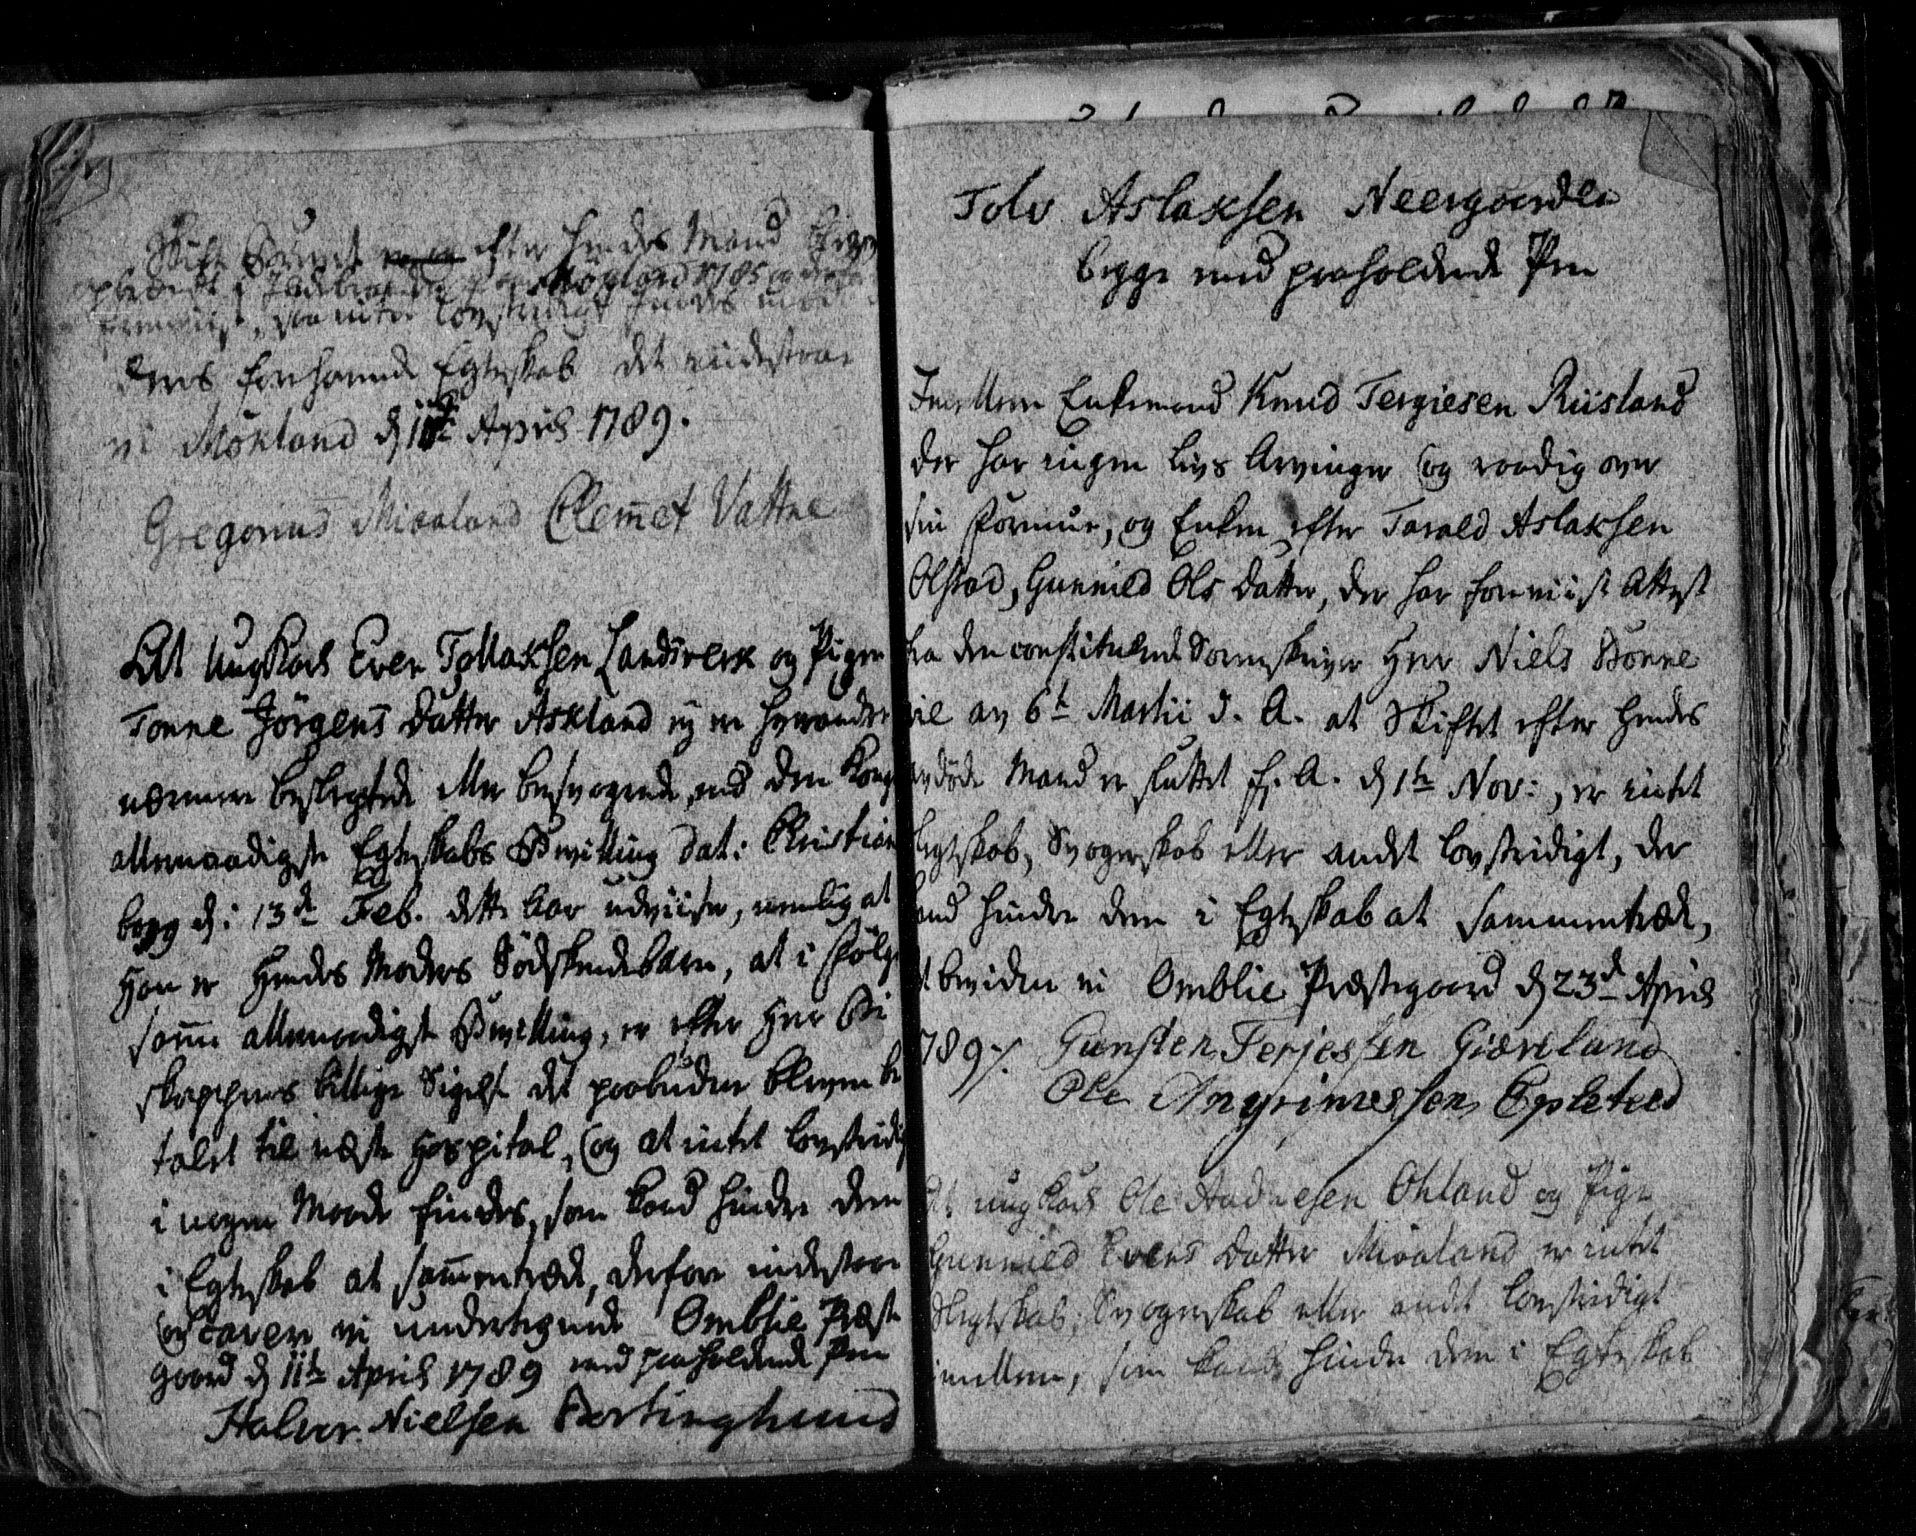 Skift efter hendes Mand
Mögland 1785 og
lovstridigt findes imod
deres forhavende Egteskab det indestaar
vi Mökland d 11te April 1789.
Gregorius Miøaland Clemet Vattne
At Ungkarl Even Tollaksen Landsverk og Pigen
Tonne Jörgens Datter Askland ej er hverandre
nærmere beslegtede eller besvogrede, end den Kongl
allernaadigste Egteskabs Bevilling dat: Christians
borg d: 13de Feb. dette Aar udviiser, nemlig at
Han er Hendes Moders Södskendebarn, at i Fölge
samme allernaadigste Bevilling, er efter Herr Bi
skoppens billige Sigelse det paabudne bleven be
talet til næste Hospital, og at intet lovstridig
i nogen Maade findes, som kand hindre dem
i Egteskab at sammentræde, derfore indestaae
og caverer vi undertegnede Omblie Præste
gaard d 11te April 1789 med paaholdende Pen
Halvor Nielsen
Tolv Aslaksen Neergaarden
begge med paaholdende Pen
Imellem Enkemand Knud Tergiesen Riisland
der har ingen Livs Arvinger og raadig over
sin Formue, og Enken efter Tarald Aslaksen
Olstad, Gunnild Ols Datter, der har foreviist Attest
fra den constituerede Sorenskriver Herr Niels Bonne
vie av 6te Martii d. A. at Skiftet efter Hendes
avdöde Mand er sluttet f. A. d 1te Nov:, er intet
Slegtskab, Svogerskab eller andet lovstridigt, der
kand hindre dem i Egteskab at sammentræde,
det bevidner vi Omblie Præstegaard d 23de April
1789 Gunsten Terjessen Giæveland
Ole Angrimessen Epleteld
At ungkarl Ole Aadnesen Ohland og Pige
Gunnild Evens Datter Miøaland er intet
Slegtskab, Svogerskab eller andet lovstridigt
imellem, som kand hindre dem i Egteskab